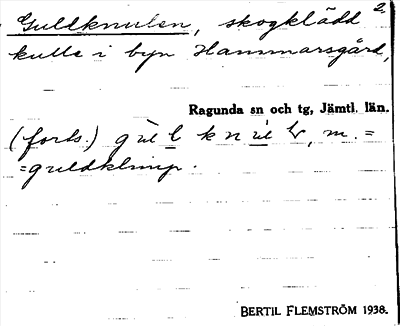 2.
Guldknulen, skogklädd
kulle i byn Hammarsgård,
Ragunda sn och tg, Jämtl. län.
(forts.) m. =
=guldklimp.
BERTIL FLEMSTRÖM 1938.